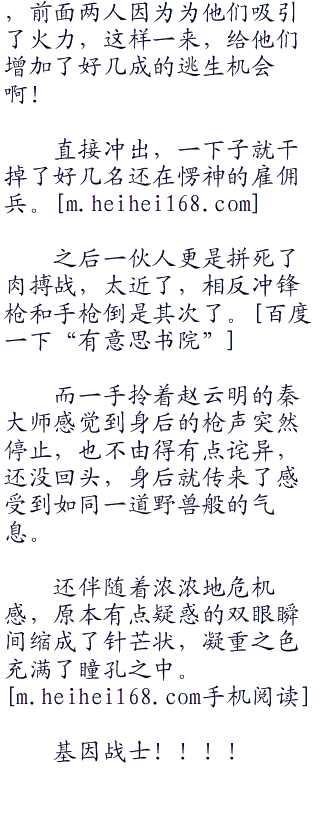 ，前面两人因为为他们吸引
了火力，这样一来，给他们
增加了好几成的逃生机会
啊！
直接冲出，一下子就干
掉了好几名还在愣神的雇佣
兵。[m.heihei168.com]
之后一伙人更是拼死了
肉搏战，太近了，相反冲锋
枪和手枪倒是其次了。[百度
一下“有意思书院”]
而一手拎着赵云明的秦
大师感觉到身后的枪声突然
停止，也不由得有点诧异，
还没回头，身后就传来了感
受到如同一道野兽般的气
息。
还伴随着浓浓地危机
感，原本有点疑惑的双眼瞬
间缩成了针芒状，凝重之色
充满了瞳孔之中。
[m.heihei168.com手机阅读]
基因战士！！！！